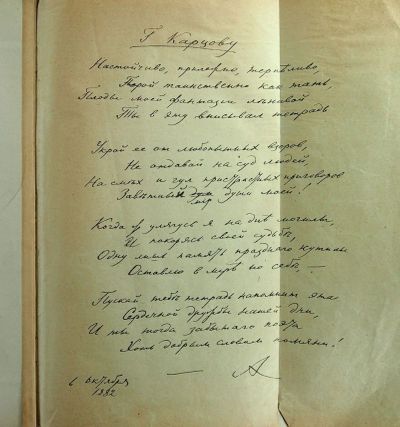 Г Карцову
Настойчиво, прилежно, терпеливо,
Порой таинственно как тать,
Плоды моей фантазии ленивой
Ты в эту вписывал тетрадь
Укрой ее от любопытных взоров,
Не отдавай на суд людей
На смех и гул пристрастных приговоров
Заветный мир души моей!
Когда улягусь я на дне могилы,
И покорясь своей судьбе,
Одну лишь память праздного кутилы
Оставлю в мире по себе, —
Пускай тебе тетрадь напомнит эта
Сердечной дружбы нашей дни,
И ты тогда забытого поэта
Хоть добрым словом помяни!
— А
6 октября
1882